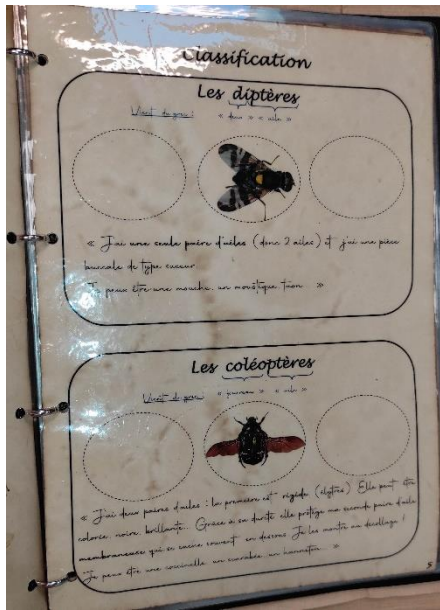 Classification
Les diptères
Vient du grec : « deux » « aile »
« J'ai une seule paire d'ailes (donc 2 ailes) et j'ai une pièce
buccale de type suceur.
Je peux être une mouche, un moustique, taon... »
Les coléoptères
Vient du grec : « fourreau » « aile »
« J'ai deux paires d'ailes : la première est rigide (élytres). Elle peut être
colorée, noire, brillante... Grâce à sa dureté elle protège ma seconde paire d'aile
membraneuse qui se cache souvent en dessous. Je les montre au décollage !
Je peux être une coccinelle, un scarabée, un hanneton... »
5